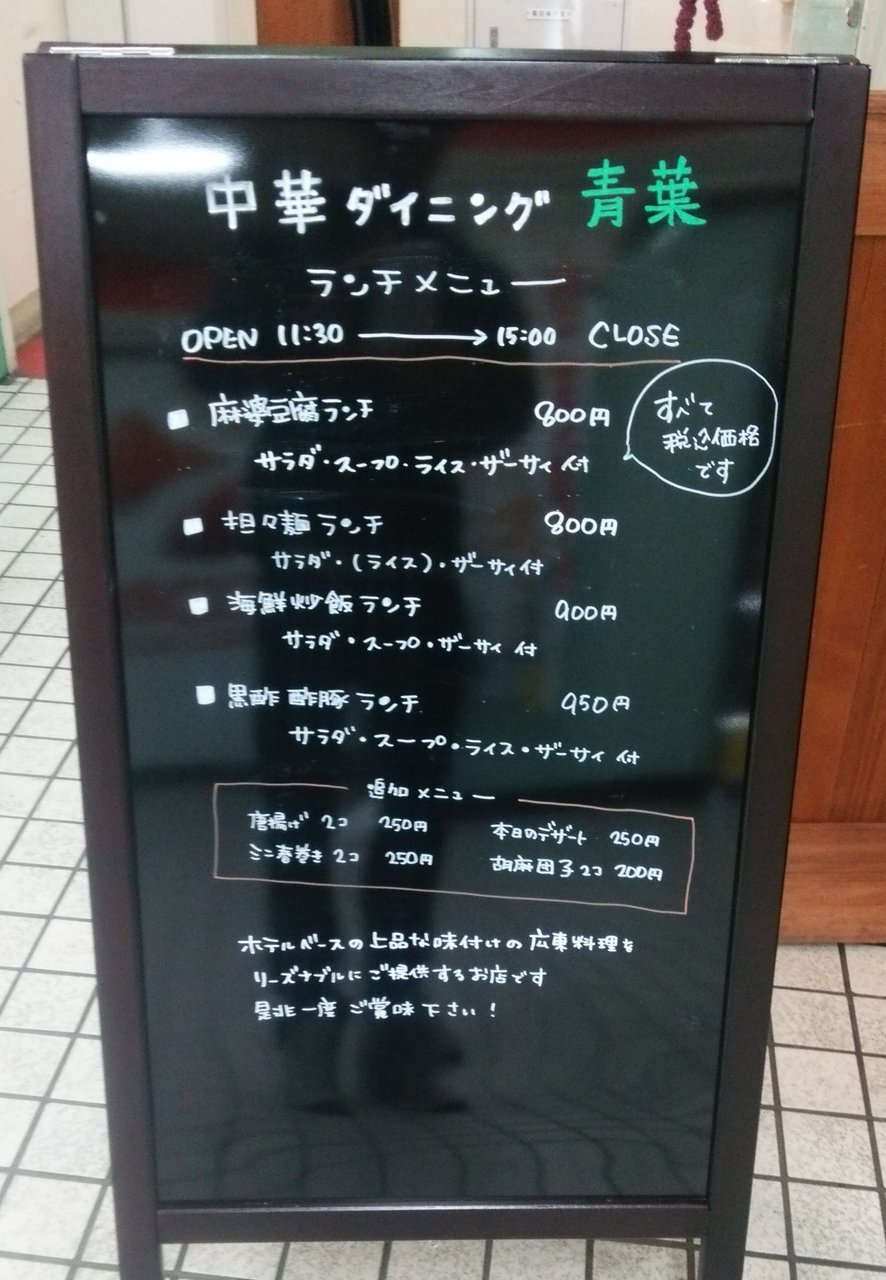 中華ダイニング 青葉
ランチメニュー
OPEN 11:30 → 15:00 CLOSE
■ 麻婆豆腐ランチ 800円
サラダ・スープ・ライス・ザーサイ付
すべて
税込価格
です
■ 担々麺ランチ 800円
サラダ・(ライス)・ザーサイ付
■ 海鮮炒飯ランチ 900円
サラダ・スープ・ザーサイ付
■ 黒酢酢豚ランチ 950円
サラダ・スープ・ライス・ザーサイ付
追加メニュー
唐揚げ 2コ 250円 本日のデザート 250円
ミニ春巻き 2コ 250円 胡麻団子2コ 200円
ホテルベースの上品な味付けの広東料理を
リーズナブルにご提供するお店です
是非一度ご賞味下さい!